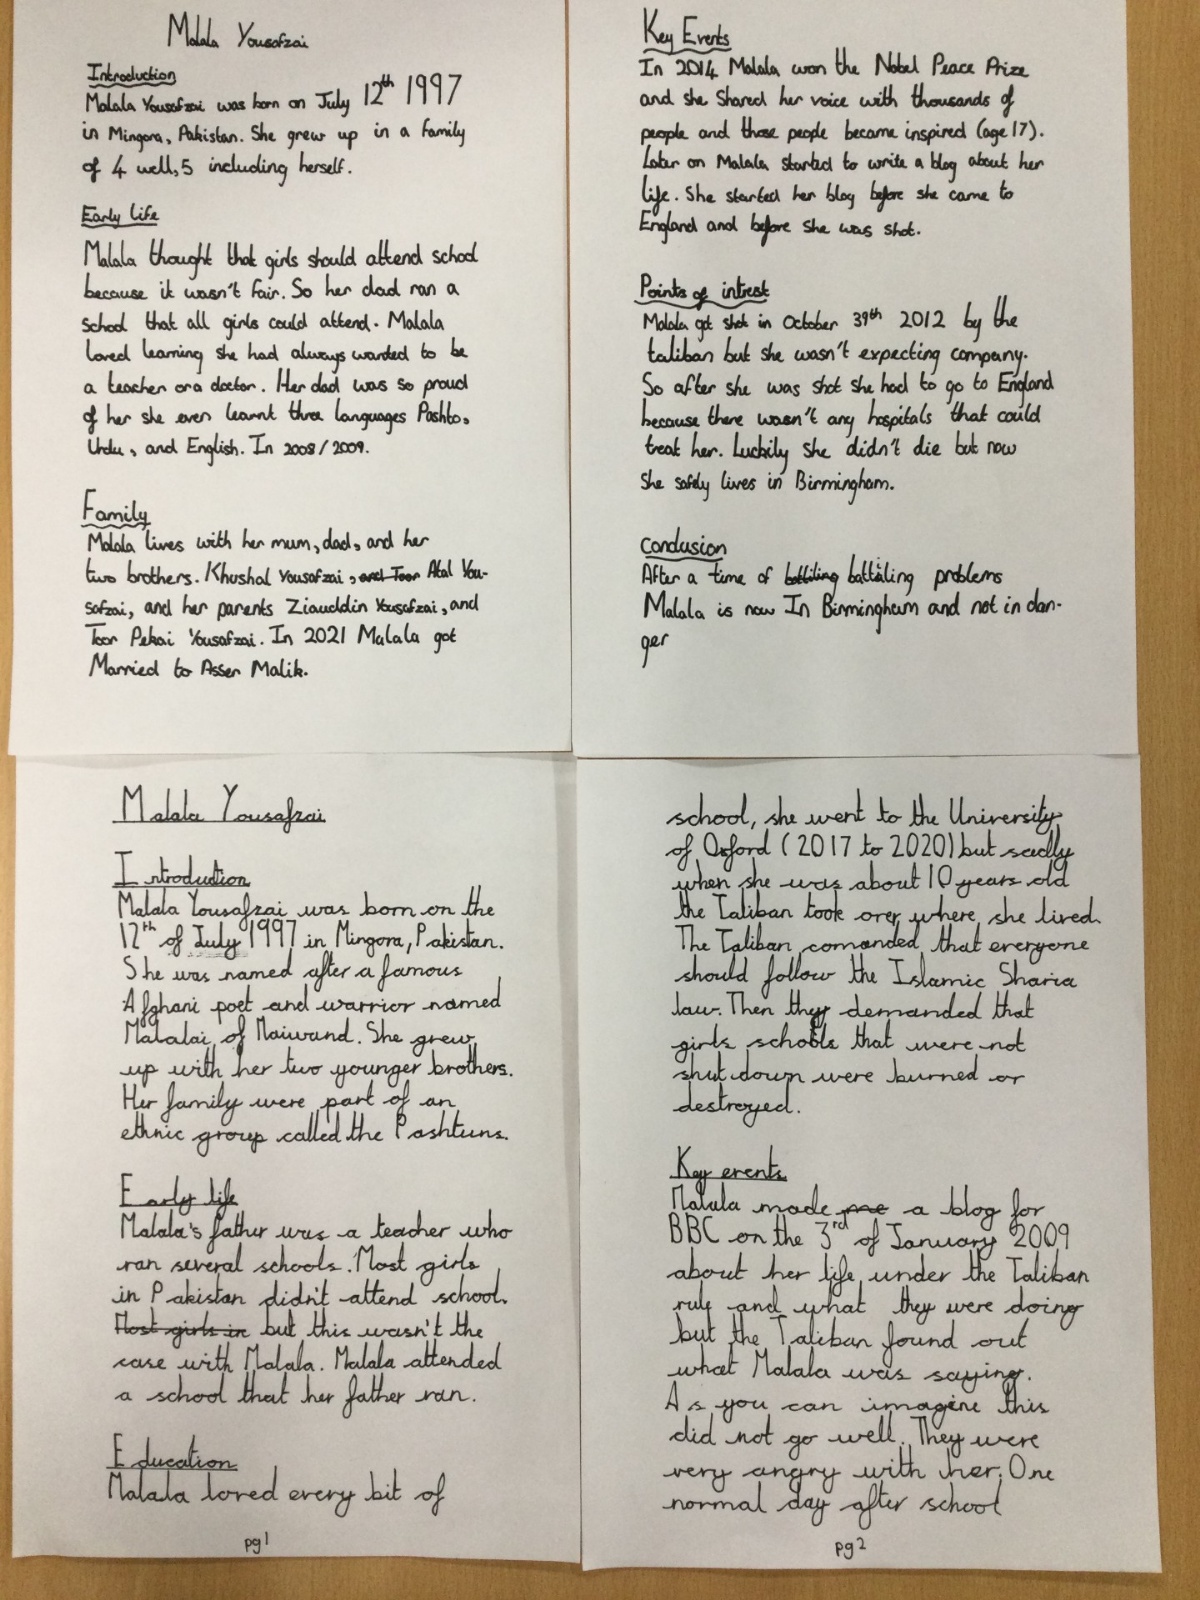 Malala Yousafzai
Introduction
Malala Yousafzai was born on July 12th 1997
in Mingora, Pakistan. She grew up in a family
of 4 well, 5 including herself.
Early life
Malala thought that girls should attend school
because it wasn't fair. So her dad ran a
school that all girls could attend. Malala
loved learning she had always wanted to be
a teacher or a doctor. Her dad was so proud
of her she even learnt three languages Pashto,
Urdu, and English. In 2008/2009.
Family
Malala lives with her mum, dad, and her
two brothers. Khushal Yousafzai, and Toor Atal You-
safzai, and her parents Ziauddin Yousafzai, and
Toor Pekai Yousafzai. In 2021 Malala got
Married to Asser Malik.
Key Events
In 2014 Malala won the Nobel Peace Prize
and she Shared her voice with thousands of
people and those people became inspired (age 17).
Later on Malala started to write a blog about her
life. She started her blog before she came to
England and before she was shot.
Points of intrest
Malala got shot in October 39th 2012 by the
taliban but she wasn't expecting company.
So after she was shot she had to go to England
because there wasn't any hospitals that could
treat her. Luckily she didn't die but now
She safely lives in Birmingham.
Conclusion
After a time of battling problems
Malala is now In Birmingham and not in dan-
ger
Malala Yousafzai
Introduction
Malala Yousafzai was born on the
12th of July 1997 in Mingora, Pakistan.
She was named after a famous
Afghani poet and warrior named
Malalai of Maiwand. She grew
up with her two younger brothers.
Her family were part of an
ethnic group called the Pashtuns.
Early life
Malala's father was a teacher who
ran several schools. Most girls
in Pakistan didn't attend school.
Most girls in but this wasn't the
case with Malala. Malala attended
a school that her father ran.
Education
Malala loved every bit of
pg1
school, she went to the University
of Oxford (2017 to 2020) but sadly
when she was about 10 years old
the Taliban took over where she lived.
The Taliban comanded that everyone
should follow the Islamic Sharia
law. Then they demanded that
girls schools that were not
shut down were burned or
destroyed.
Key events
Malala made me a blog for
BBC on the 3rd of January 2009
about her life under the Taliban
rule and what they were doing
but the Taliban found out
what Malala was saying.
As you can imagine this
did not go well. They were
very angry with her. One
normal day after school
pg2